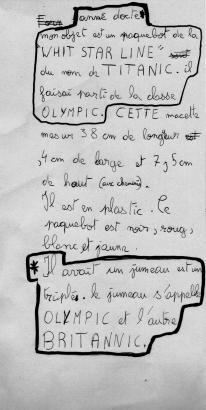 anné docte*
mon objet est un paquebot de la
"WHIT STAR LINE"
du nom de TITANIC. il
faisai parti de la classe
OLYMPIC. CETTE macette
mesur 38 cm de longueur
,4 cm de large et 7,5cm
de haut (avec cheminé).
Il est en plastic. Ce
paquebot est noir, roug,
blanc et jaune.
* Il avait un jumeau est un
triplé. le jumeau s'appelle
OLYMPIC et l'autre
BRITANNIC.